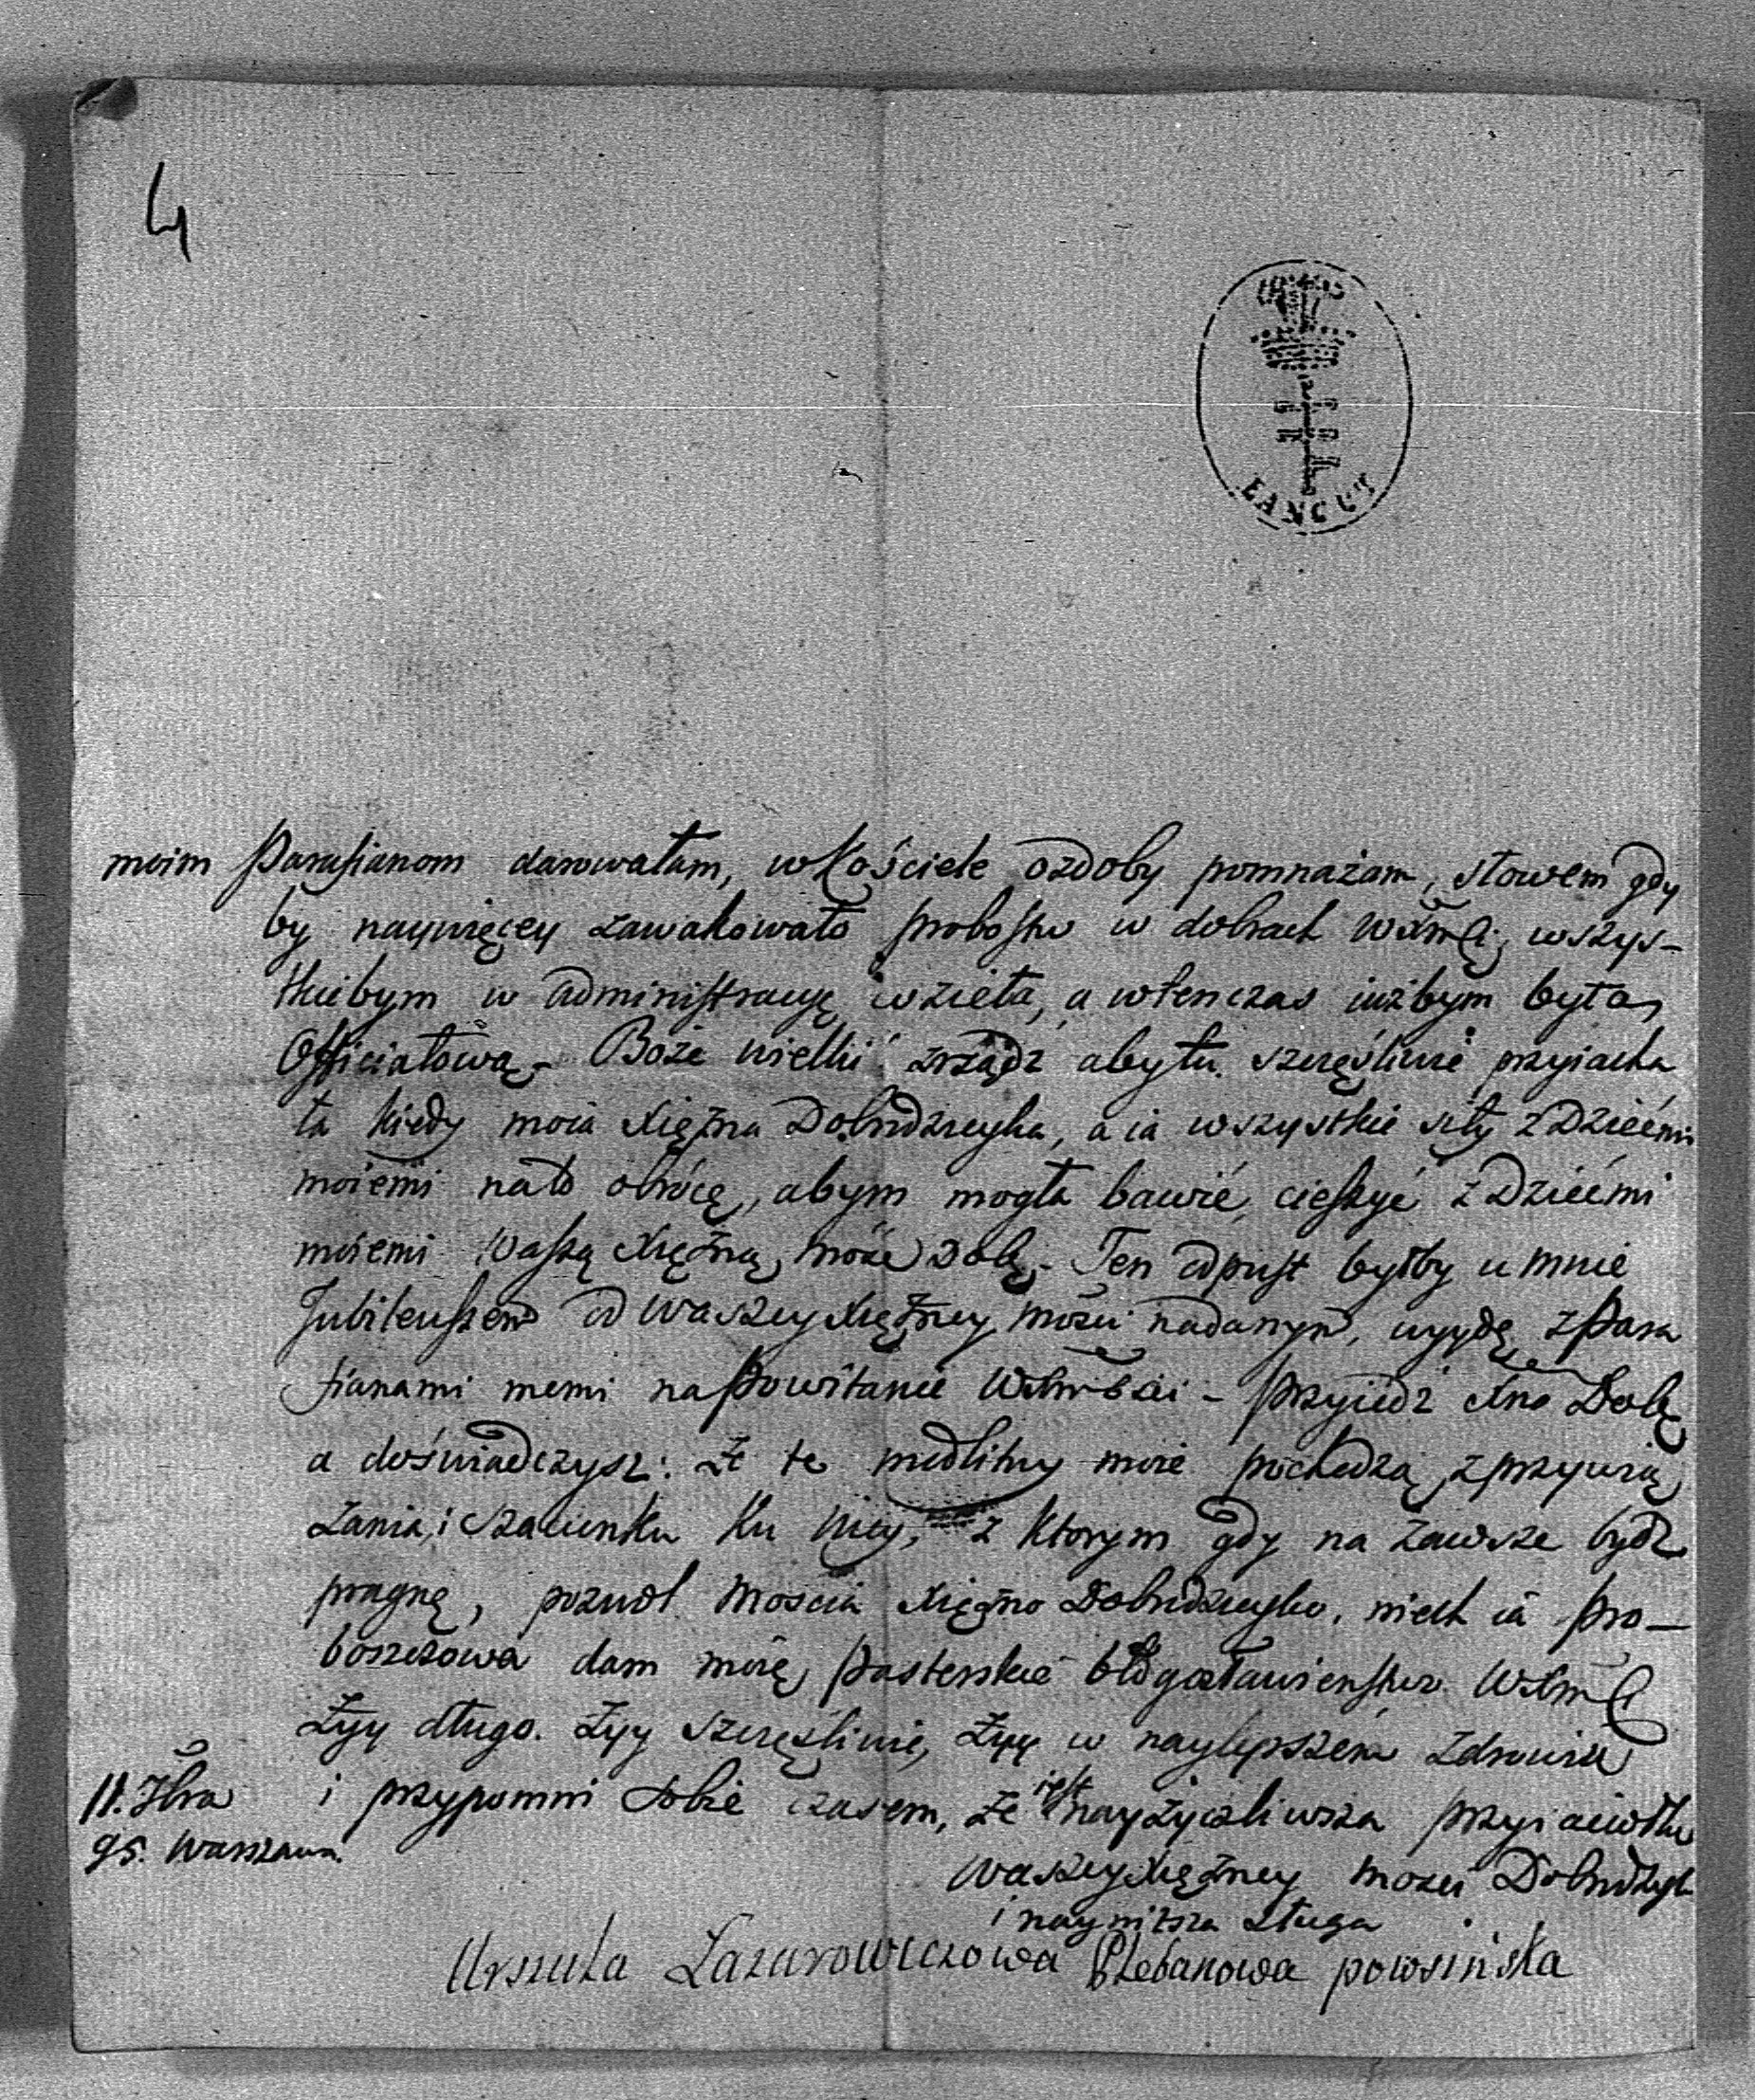 4
ŁAŃCUT
moim Parafianom darowałam, w Kościele ozdoby pomnażam, słowem gdy
by naywięcey zawakowało probostw w dobrach wszys-
tkiebym w administracyę wzieła, a wtenczas iużbym była
Officiałową - Boże wielki zrządź abytu szczęśliwie przyiecha
ła kiedy moia Xiężna Dobrodzieyka, a ia wszystkie siły z Dziećmi
moiemi nato obrócę, abym mogła bawić, cieszyć z Dziećmi
moiemi Waszą Xiężną Mość Dobę. Ten odpust byłby u mnie
Jubileuszem od Waszey Xiężney Mości nadanym, wyydę z Para
fianami memi na Powitanie - Przyiedź Xno Dobę
a doświadczysz: że te modlitwy moie pochodzą z przywią
zania, i szacunku ku Niey, z ktorym gdy na zawsze bydź
pragnę, pozwól Mościa Xiężno Dobrodzieyko, niech ia Pro-
boszczowa dam moię Pasterskie błogosławieństwo
Żyy długo. Żyy szczęśliwie, Żyy w naylepszem zdrowiu
11. Xbra i przypomni sobie czasem, że iest nayżyczliwsza przyiaciołka
95. Warszawa.
Waszey Xiężney Mości Dobrodzyki
i nayniższa sługa
Urszula Lazarowiczowa Plebanowa powsińska